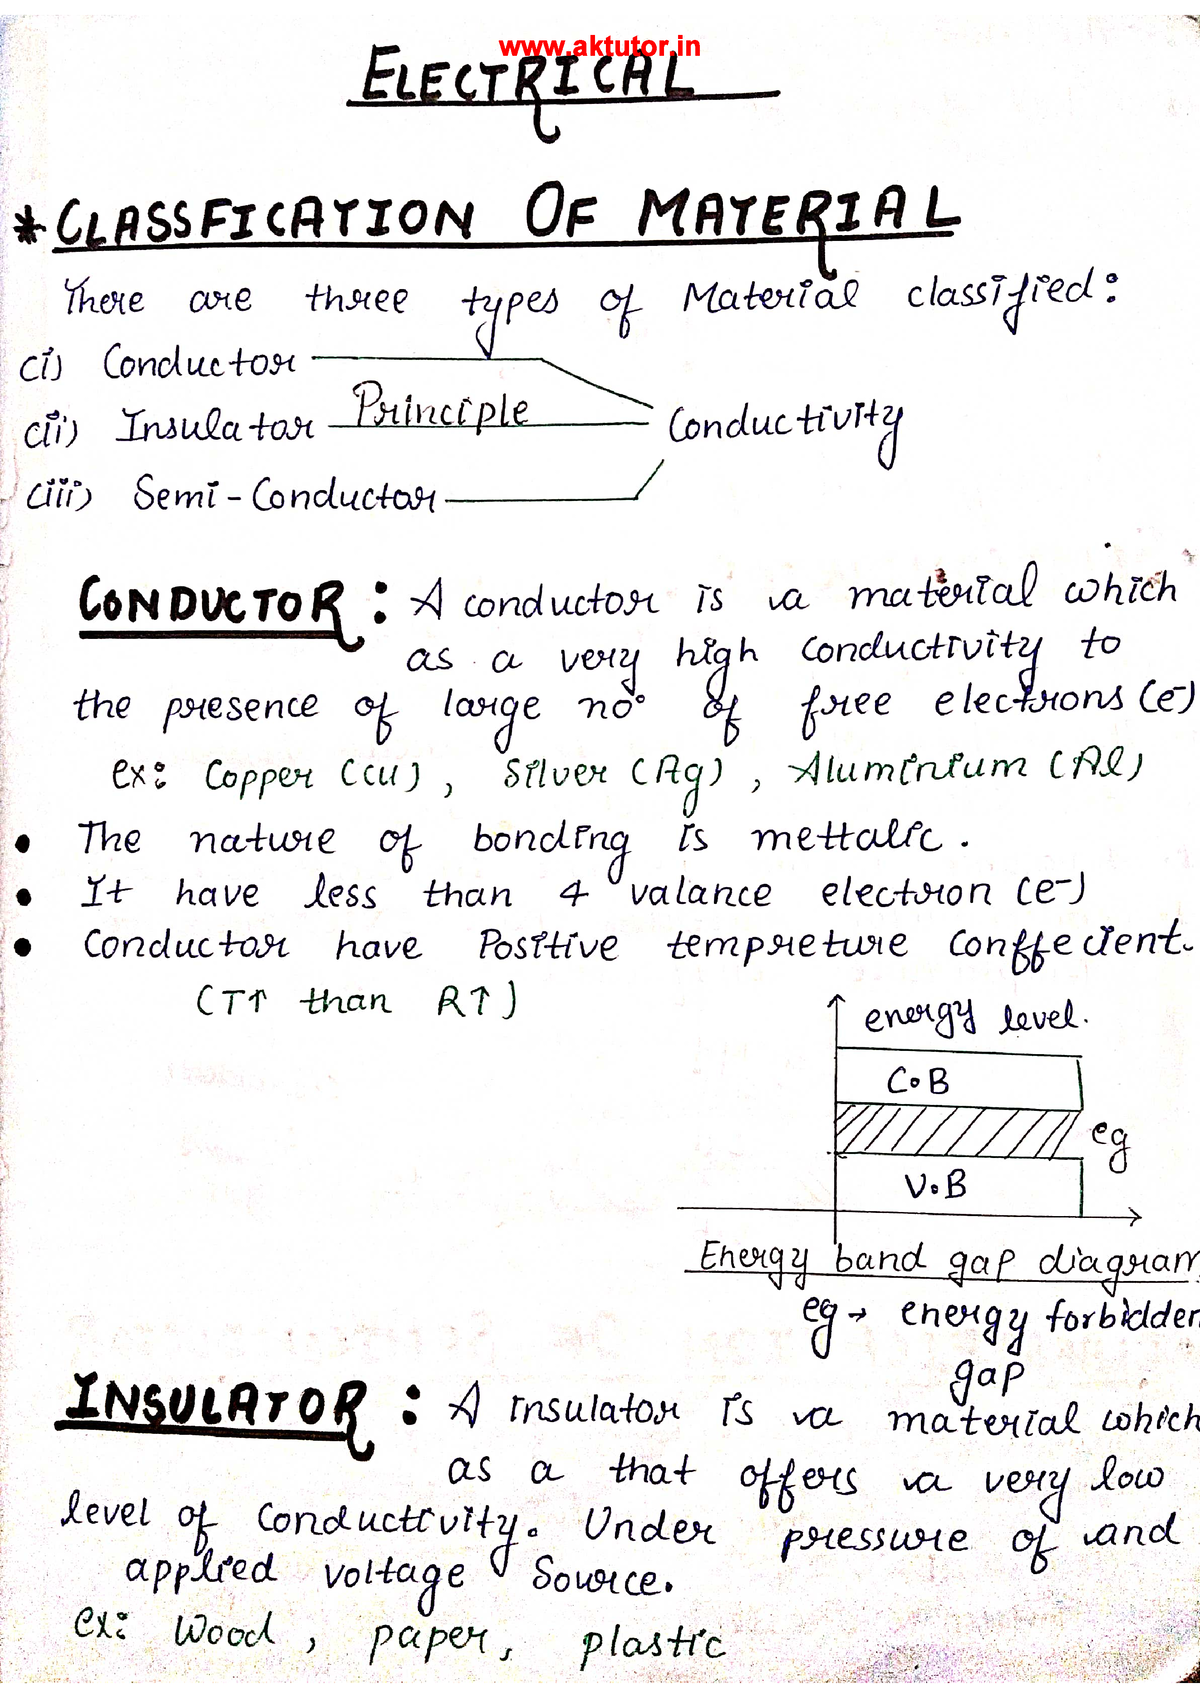 www.aktutor.in
ELECTRICAL
* CLASSFICATION OF MATERIAL
There are three types of Material classified:
(i) Conductor
(ii) Insulator Principle Conductivity
(iii) Semi-Conductor
CONDUCTOR: A conductor is a material which
as a very high conductivity to
the presence of large no° of free electrons (e-)
ex: Copper (cu), Silver (Ag), Aluminium (Al)
• The nature of bonding is mettalic.
• It have less than 4 valance electron (e-)
• Conductor have Positive tempreture Conffecient.
(T↑ than R↑)
energy level.
C.B
eg
V.B
Energy band gap diagram
eg → energy forbidden
gap
INSULATOR: A insulator is a material which
as a that offers a very low
level of conductivity. Under pressure of and
applied voltage Source.
ex: Wood, paper, plastic